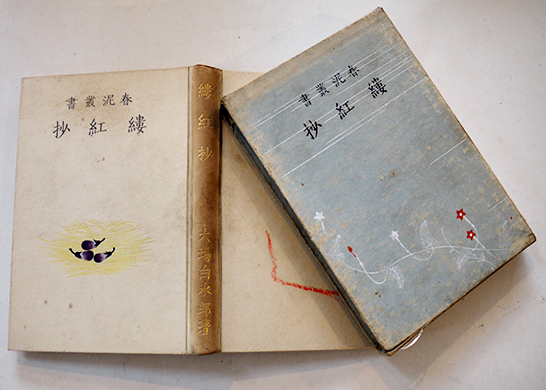 春泥叢書
縷紅抄
縷紅抄 大場白水郎著
春泥叢書
縷紅抄